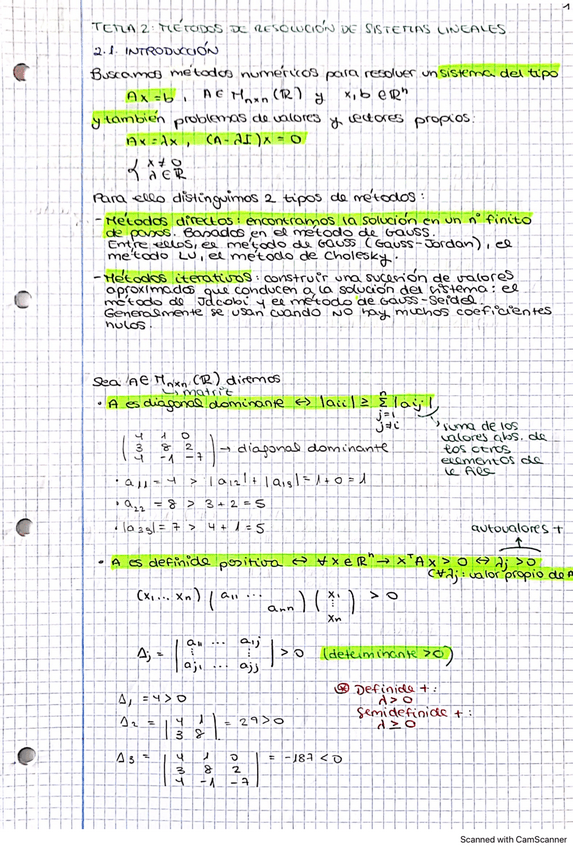 1
TEMA 2: MÉTODOS DE RESOLUCIÓN DE SISTEMAS LINEALES
2.1. INTRODUCCIÓN
Buscamos métodos numéricos para resolver un sistema del tipo
Ax=b, A∈M_{nxn}(ℝ) y x,b∈ℝⁿ
y también problemas de valores y vectores propios:
Ax=λx, (A-λI)x=0
{ x≠0
λ∈ℝ
Para ello distinguimos 2 tipos de métodos:
- Métodos directos: encontramos la solución en un nº finito
de pasos. Basados en el método de Gauss.
Entre ellos, el método de Gauss (Gauss-Jordan), el
método LU, el método de Cholesky.
- Métodos iterativos: construir una sucesión de valores
aproximados que conducen a la solución del sistema: el
método de Jacobi y el método de Gauss-Seidel.
Generalmente se usan cuando NO hay muchos coeficientes
nulos.
Sea A∈M_{nxn}(ℝ) diremos
↳ matriz
• A es diagonal dominante ⇔ |aii| ≥ Σ |aij|
n
j=1
j≠i
suma de los
valores abs. de
los otros
elementos de
la fila
4 1 0
3 8 2 → diagonal dominante
4 -1 -7
• a₁₁ = 4 > |a₁₂| + |a₁₃| = 1+0 = 1
• a₂₂ = 8 > 3+2 = 5
• |a₃₃| = 7 > 4+1 = 5
autovalores +
• A es definida positiva ⇔ ∀x∈ℝⁿ → xᵀAx > 0 ⇔ λj > 0
(∀λj: valor propio de A
(x₁ ... xn) ( a₁₁ ... ann ) ( x₁ ⋮ xn ) > 0
Δj = | a₁₁ ... a₁j ⋮ ⋮ aj₁ ... ajj | > 0 (determinante >0)
Δ₁ = 4 > 0
⊛ Definida +:
λ>0
Semidefinida +:
λ≥0
Δ₂ = | 4 1 3 8 | = 29 > 0
Δ₃ = | 4 1 0 3 8 2 4 -1 -7 | = -187 < 0
Scanned with CamScanner